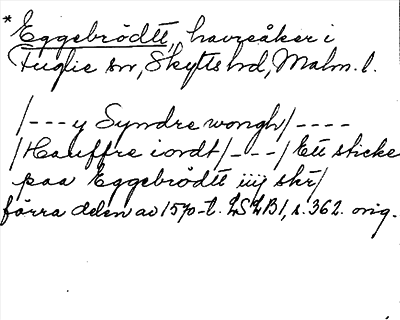 * Eggebrödtt, havreåker i
Fuglie sn, Skytts hd, Malm. l.
/---y Syndre wongh/----
/Hauffre iordt/---/Ett sticke
paa Eggebrödtt iiij skr/
förra delen av 1570-t. LSLB1, s. 362. orig.